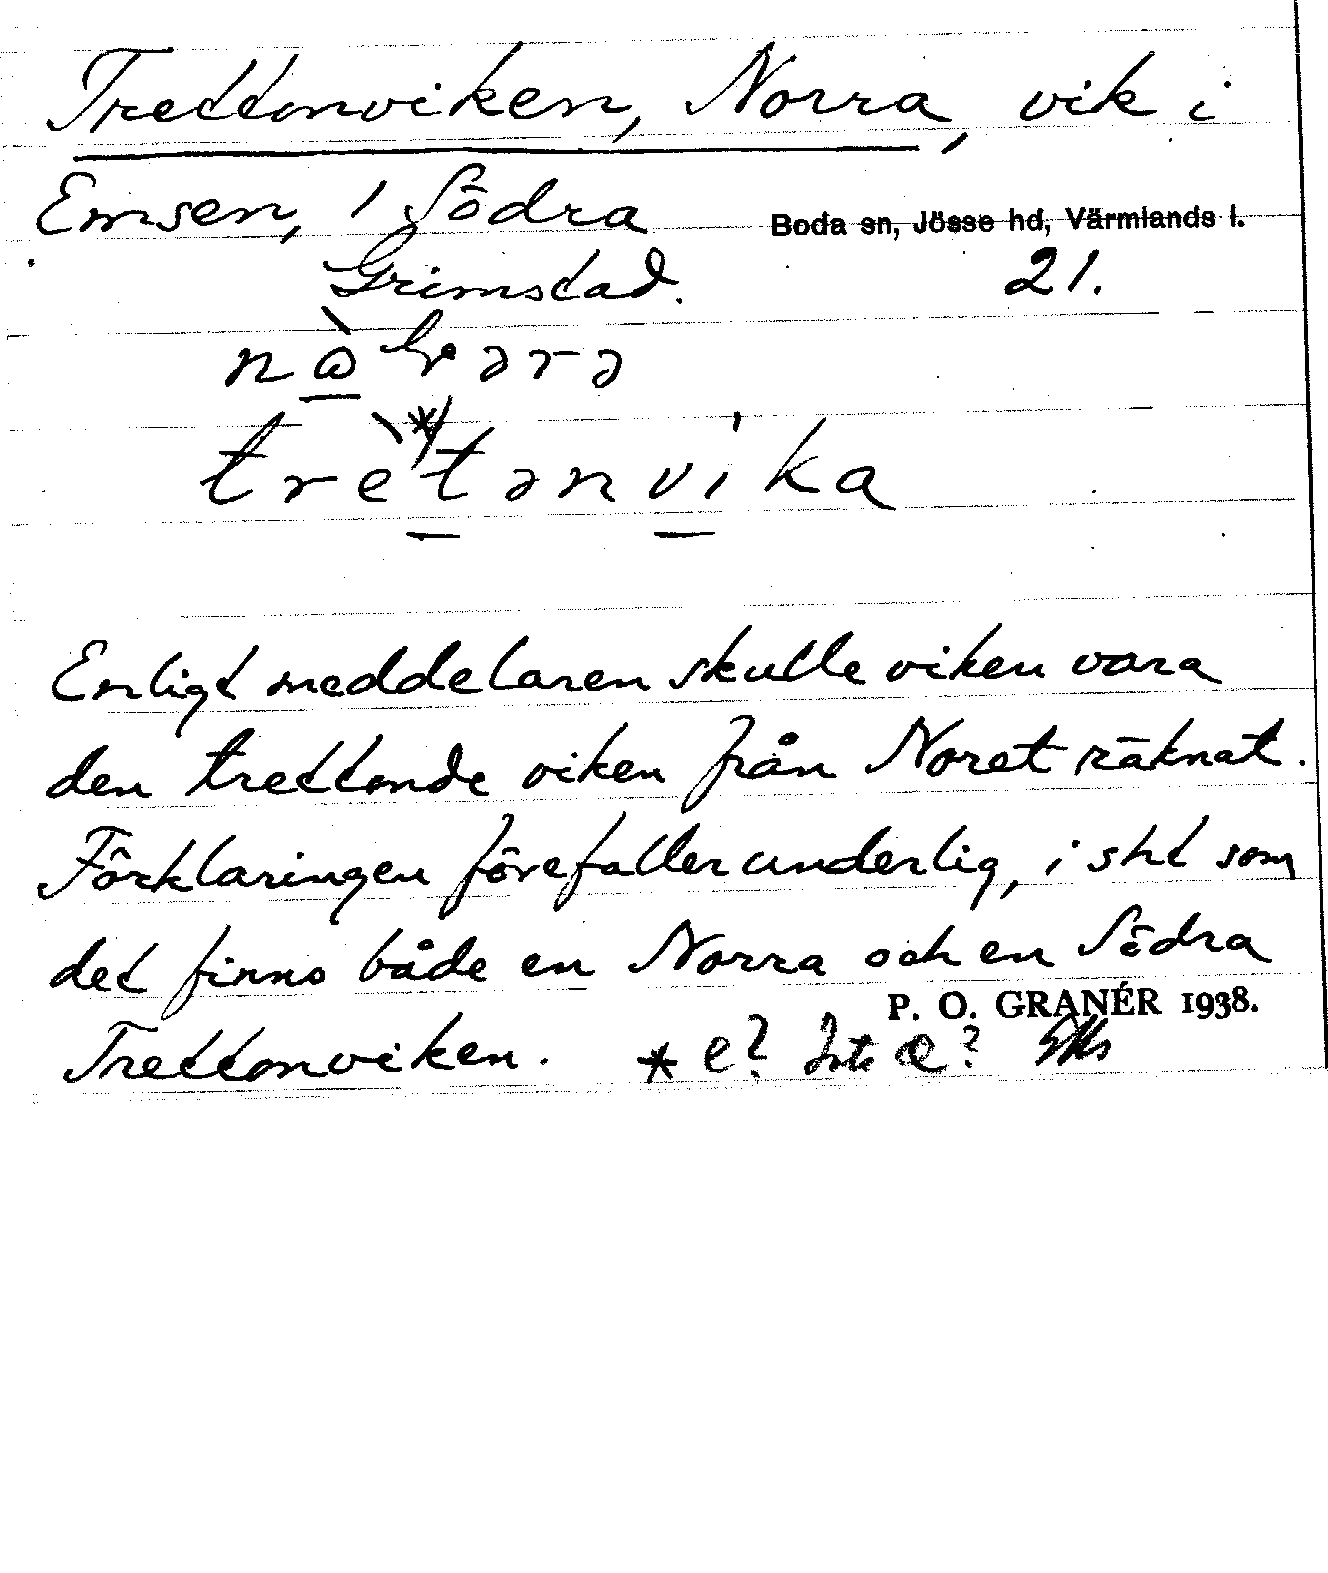 Trettonviken, Norra, vik i
Emsen, 1 Södra Boda sn, Jösse hd, Värmlands l.
Grimstad. 21.
tretənvika
Enligt meddelaren skulle viken vara
den trettonde viken från Noret räknat.
Förklaringen förefaller underlig, i sht som
det finns både en Norra och en Södra
P. O. GRANÉR 1938.
Trettonviken. * e? Inte